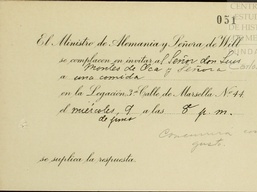 CENTRO
ESTUD
DE HIS
051
El Ministro de Alemania y Señora de Will
se complacen en invitar al Señor don Luis
Montes de Oca y Señora
a una comida
en la Legación, 3ª Calle de Marsella Nº 44,
el miércoles, 9 a las 8 p. m.
de junio
Concurrirá con
gusto.
se suplica la respuesta.